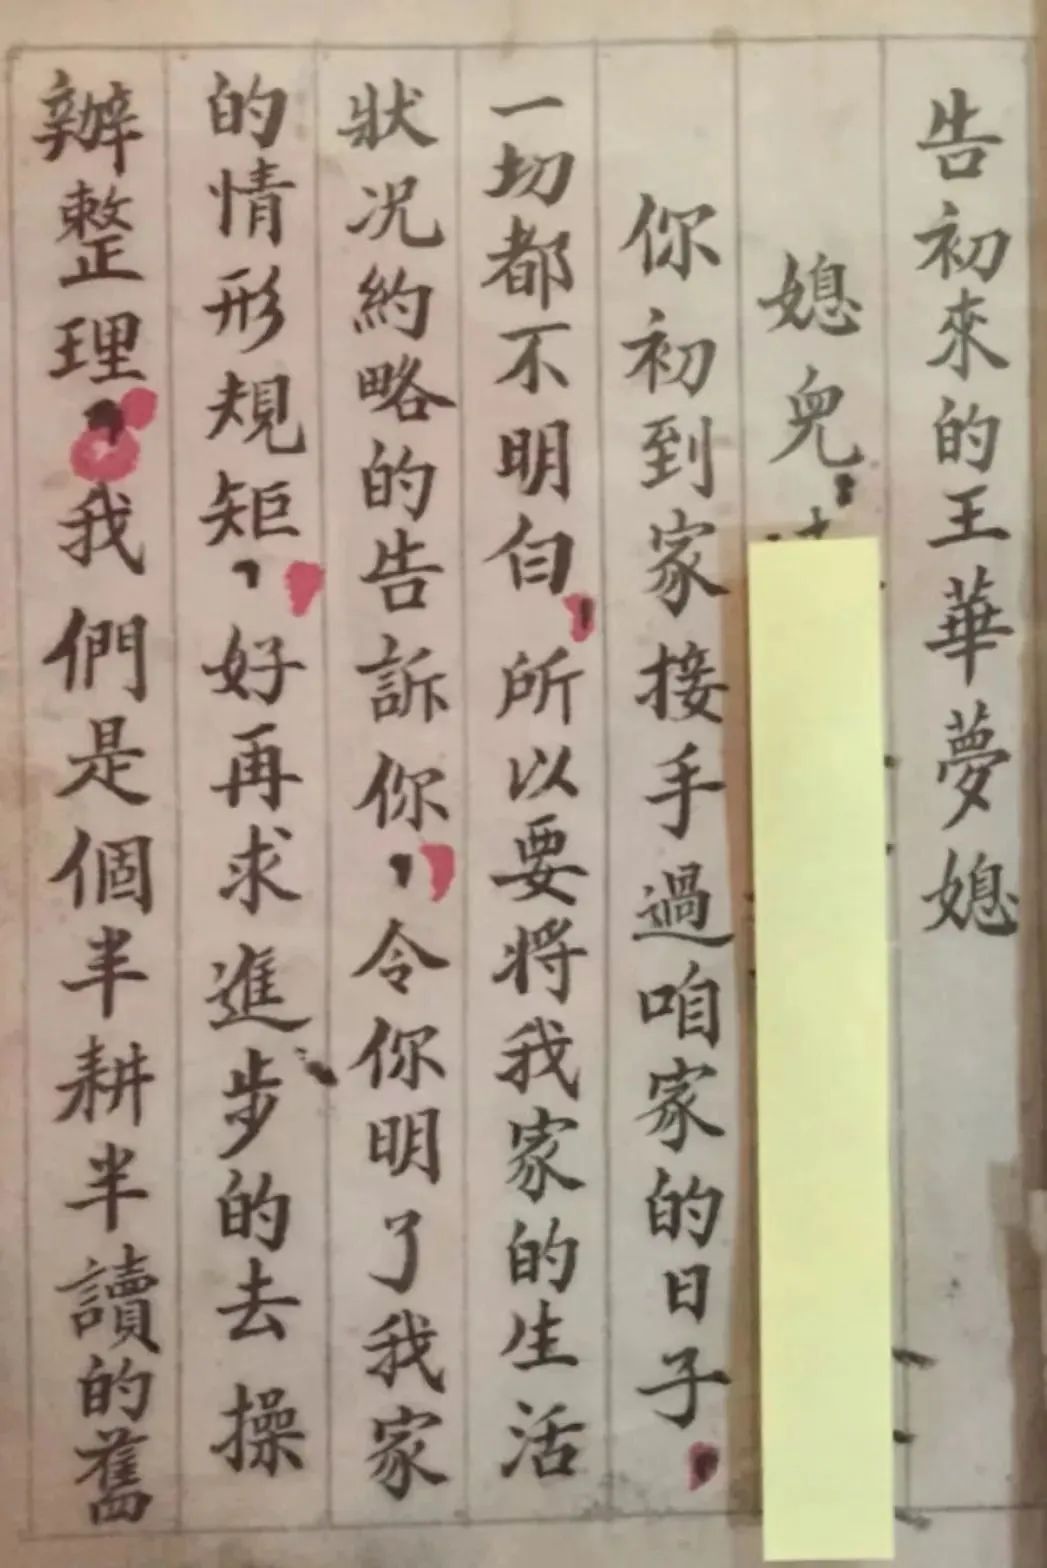 告初來的王華夢媳
媳兒：
你初到家接手過咱家的日子，
一切都不明白，所以要將我家的生活
狀况約略的告訴你，令你明了我家
的情形規矩，好再求進步的去操
辦整理。我們是個半耕半讀的舊